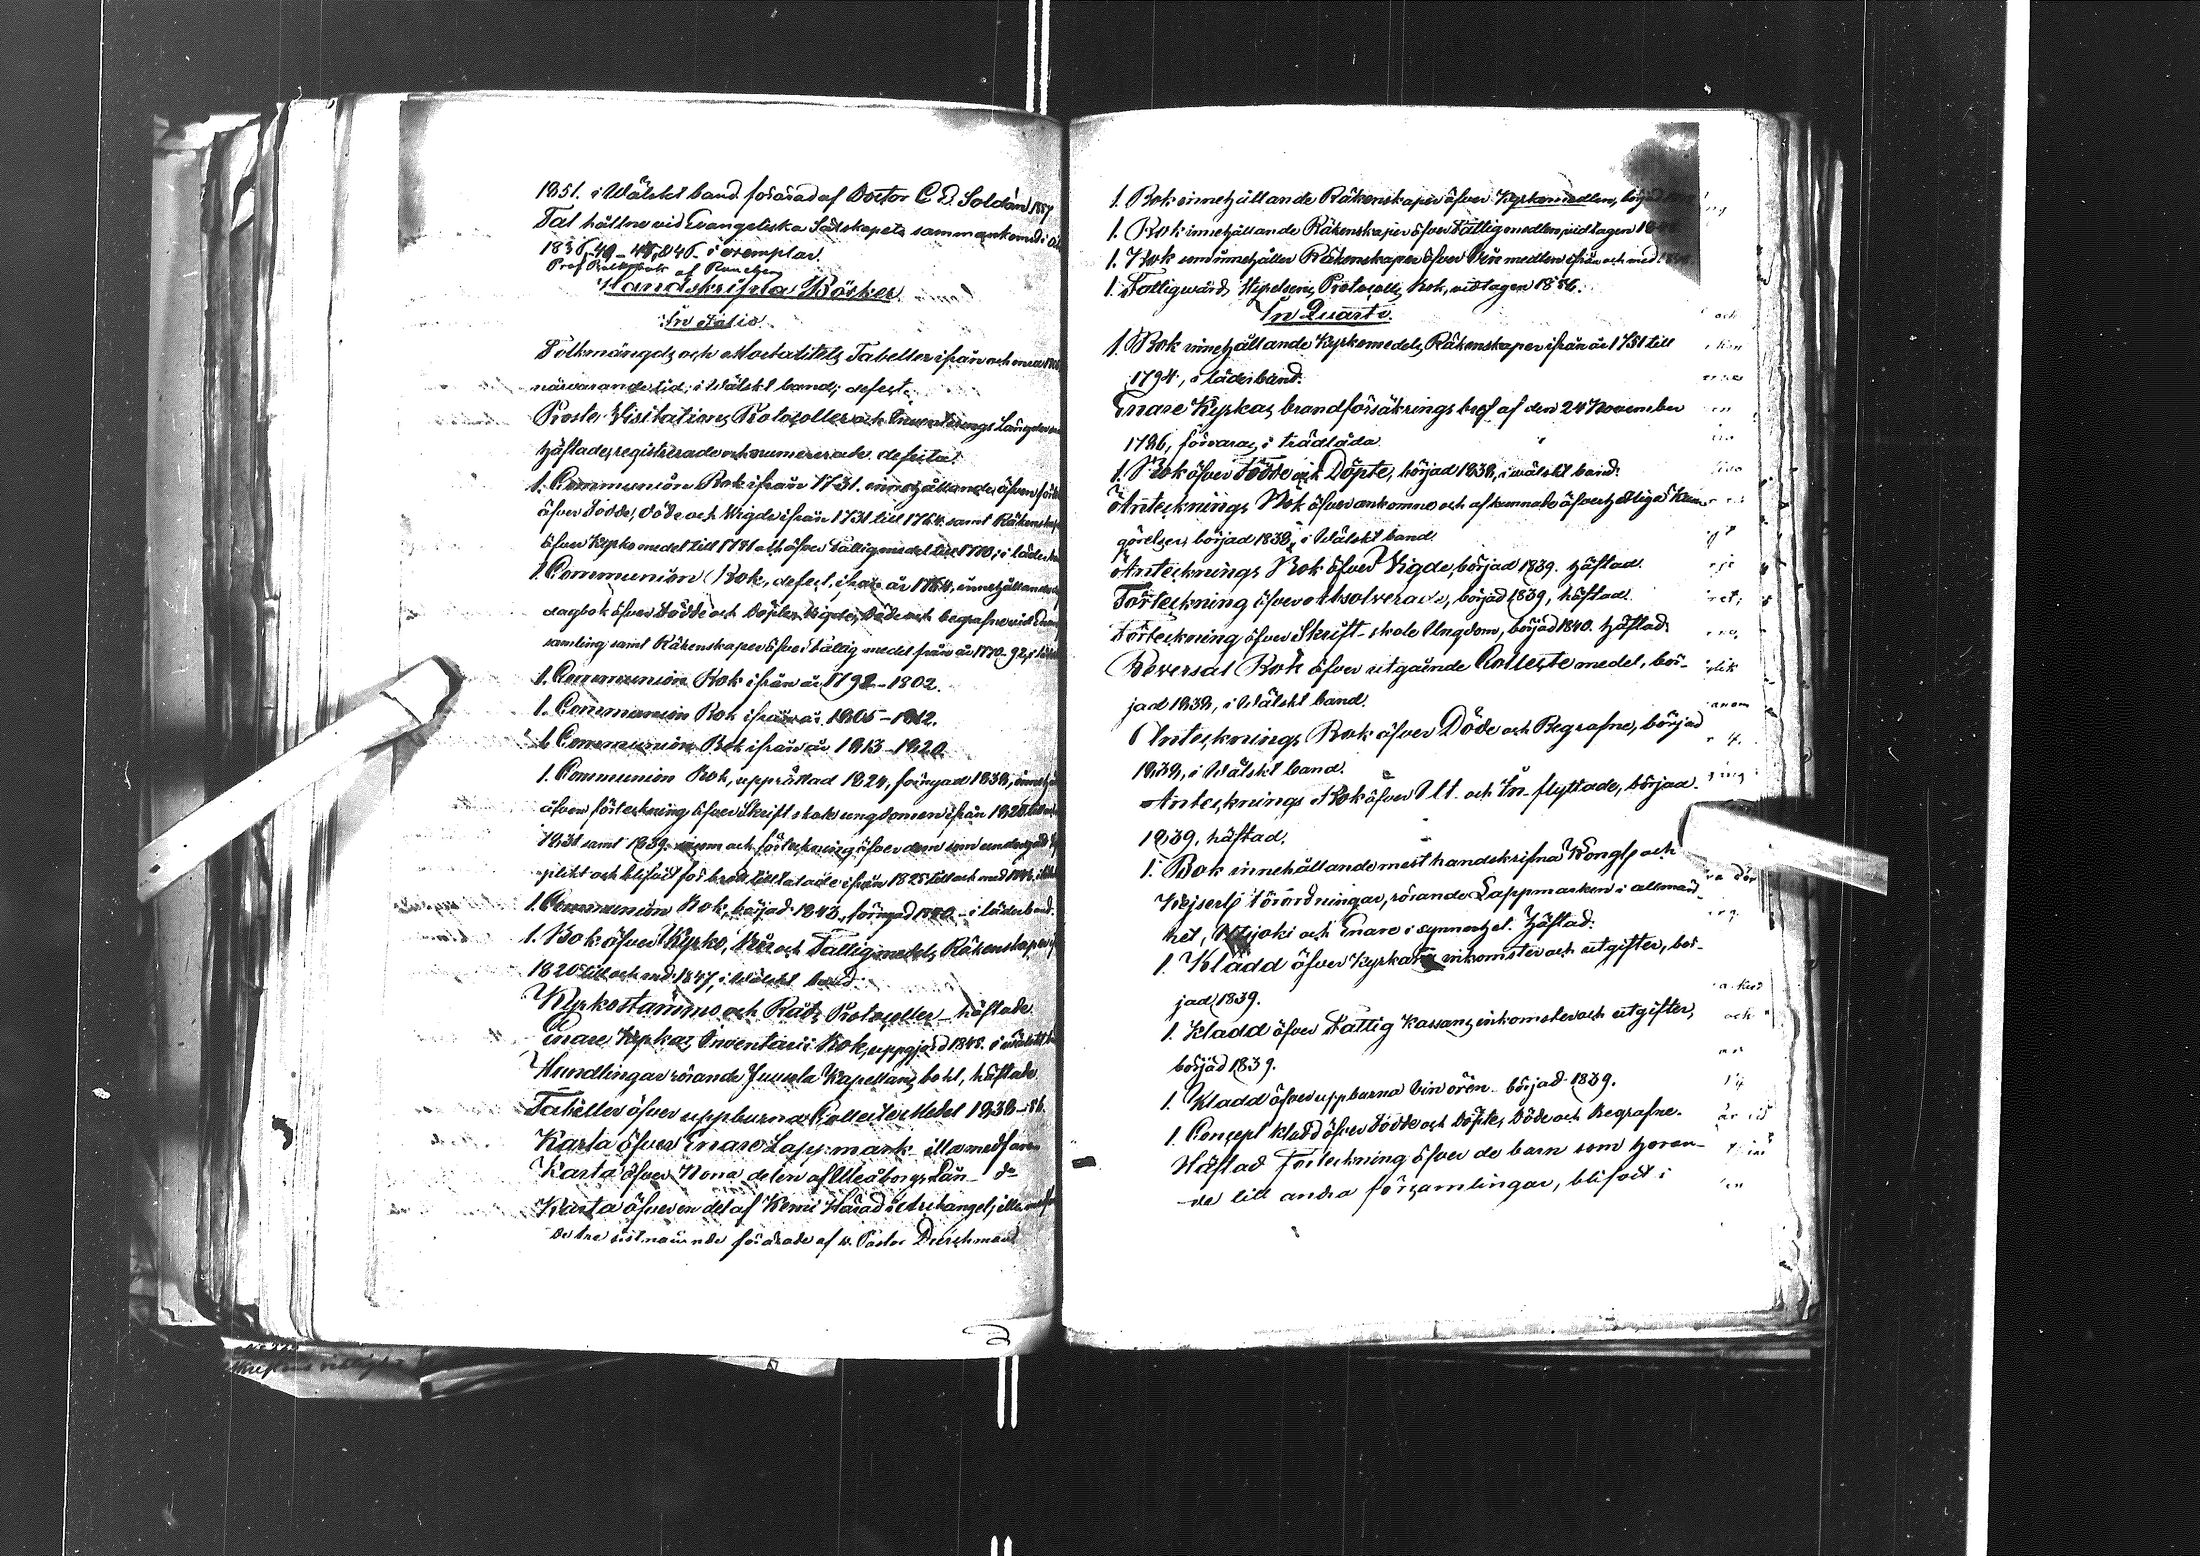 1851. i Wälskt band förärad af Doctor C. D. Soldán 1857
Tal hållne vid Evangeliska Sälskapets sammankomst i
1836, 40 - 45, 846 - i exemplar.
af Runeberg
Handskrifna Böcker
In Folio.
Folkmängds och Mortalitets Tabeller ifrån och med
närvarande tid, i Wälskt band, defect.
Prosts Visitations Protocoller och Inventerings Längder
häftade, registrerade och numererade. defecta.
1. Communion Bok ifrån 1731. innehållande äfven
öfver Födde, Döde och Wigde ifrån 1731 till 1764. samt Räkenskap
öfver Kyrko medel till 1781 och öfver Fattig medel till 1770; i läder
1. Communion Bok, defect, ifrån år 1764. innehållande
dagbok öfver Födde och Döpte, Wigde, Döde och begrafne vid Enare
samling samt Räkenskaper öfver Fattig medel från år 1770-92, i
1. Communion Bok ifrån år 1792-1802.
1. Communion Bok ifrån år 1805-1812.
1. Communion Bok ifrån år 1813-1820.
1. Communion Bok, upprättad 1824, förnyad 1838,
äfven förteckning öfver Skriftskole ungdomen ifrån 182
1831 samt 1839. och förteckning öfver dem som undergått
plikt och blifvit för brott tilltalade ifrån 1825 till och med
1. Communion Bok, började 1843, förnyad 1850 - i läderband.
1. Bok öfver Kyrko, Vin och Fattigmedels Räkenskaper
1820 till och med 1847, i Wälskt band.
Kyrkostämmo och Råds Protocoller - häftade
Enare Kyrkas Inventarii Bok, uppgjord 1848. i wälskt
Handlingar rörande Juuola Kapellans bohl, häftade
Tabeller öfver uppburna Collecte Medel 1838-56.
Karta öfver Enare Lappmark illa medfaren
Karta öfver Norra delen af Uleåborgs Län do
Karta öfver en del af Kemi Härad i Archangel, illa
de tre sistnämnde förärade af v. Pastor Durchman
1. Bok innehållande Räkenskaper öfver Kyrkomedlen, börjad
1. Bok innehållande Räkenskaper öfver Fattigmedlen vidtagen 18
1. Bok som innehåller Räkenskaper öfver Vin medlen ifrån och med
1. Fattigvårds Styrelsens Protocolls Bok, vidtagen 1856.
In Quarto.
1. Bok innehållande Kyrkomedels Räkenskaper ifrån år 1731 till
1794, i läderband.
Enare Kyrkas brandförsäkrings bref af den 24 November
1786, förvaras i trädlåda.
1. Bok öfver Födde och Döpte, börjad 1838, i wälskt band.
Antecknings Bok öfver ankomne och afkunnade öfverhetliga Kun-
görelser, börjad 1838, i Wälskt band.
Antecknings Bok öfver Wigde, börjad 1839. häftad.
Förteckning öfver absolverade, börjad 1839, häftad.
Förteckning öfver Skrift-skole Ungdom, börjad 1840. häftad.
Reversal Bok öfver utgående Collecte medel, bör-
jad 1838, i Wälskt band.
Antecknings Bok öfver Döde och Begrafne, börjad
1838, i Wälskt band.
Antecknings Bok öfver Ut- och In-flyttade, börjad
1839, häftad.
1. Bok innehållande mest handskrifna Kongl och
Kejserl Förordningar, rörande Lappmarken i allmän-
het, Utsjoki och Enare i synnerhet. häftad.
1. Kladd öfver Kyrkans inkomster och utgifter, bör-
jad 1839.
1. Kladd öfver Fattig Kassans inkomster och utgifter,
börjad 1839.
1. Kladd öfver uppburna Vin ören börjad 1839.
1. Concept kladd öfver Födde och Döpte, Döde och Begrafne.
Häftad Förteckning öfver de barn som höran-
de till andra församlingar, blifvit i